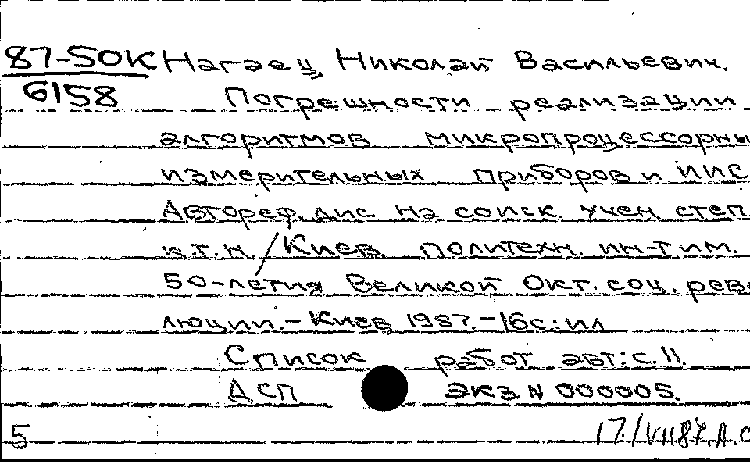 87-50К Нагаец, Николай Васильевич.
6158 Погрешности реализации
алгоритмов микропроцессорны
измерительных приборов и ИИС
Автореф. дис. на соиск. учен. степ
к.т.н. / Киев политехн. ин-т им.
50-летия Великой Окт. соц. рев
люции. - Киев, 1987. - 16с.: ил
Список работ авт.: с. 11.
ДСП экз N 000005.
5 17/VII87. Л.О